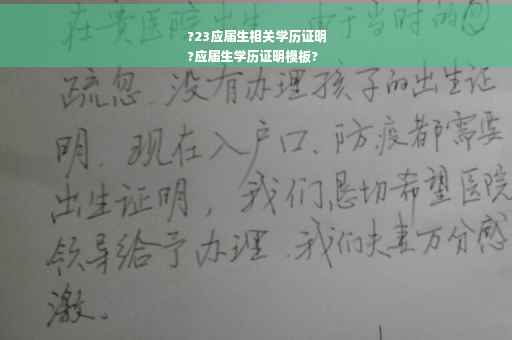 在贵医院出生,由于当时的
?23应届生相关学历证明
?应届生学历证明模板?
疏忽,没有办理孩子的出生证
明。现在入户口、防疫都需要
出生证明,我们恳切希望医院
领导给予办理,我们夫妻万分感
激。